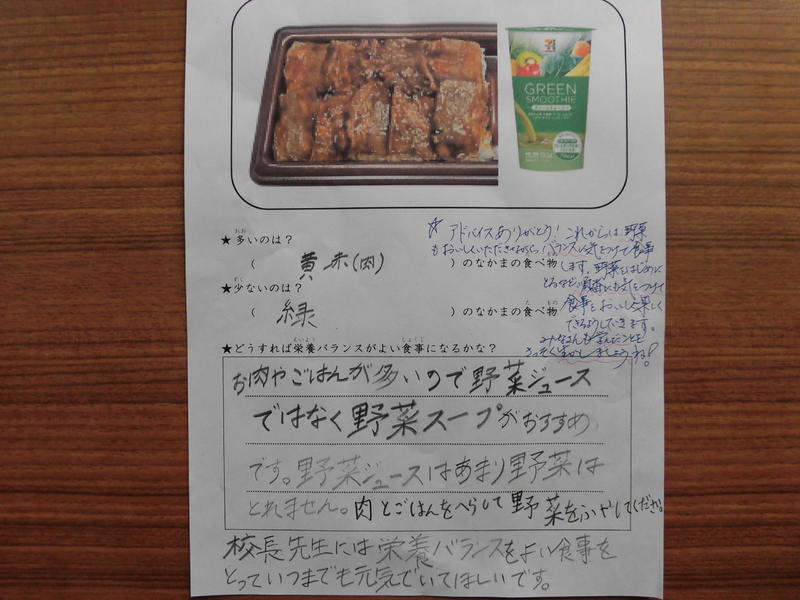 GREEN
SMOOTHIE
グリーンスムージー
★多いのは？
（ 黄 赤(肉) ）のなかまの食べ物
★少ないのは？
（ 緑 ）のなかまの食べ物
★どうすれば栄養バランスがよい食事になるかな？
お肉やごはんが多いので野菜ジュース
ではなく野菜スープがおすすめ
です。野菜ジュースはあまり野菜は
とれません。肉とごはんをへらして野菜をふやしてください。
校長先生には栄養バランスをよい食事を
とっていつまでも元気でいてほしいです。
☆ アドバイスありがとう！これからは野菜
もおいしくいただきながら、バランスに気をつけて食事
します。野菜をはじめに
とるなど、順番にも気をつけて
食事をおいしく楽しく
できるようにしていきます。
みなさんも学んだことを
さっそく生かしましょうね！